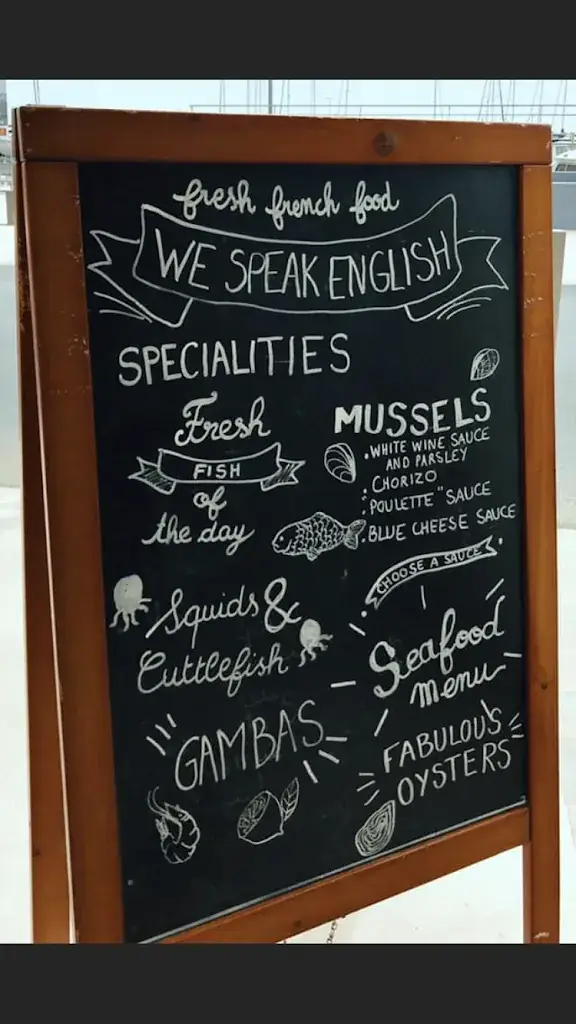 fresh french food
WE SPEAK ENGLISH
SPECIALITIES
Fresh
FISH
of
the day
MUSSELS
. WHITE WINE SAUCE
AND PARSLEY
. CHORIZO
. "POULETTE" SAUCE
. BLUE CHEESE SAUCE
CHOOSE A SAUCE
Squids &
Cuttlefish
Seafood
menu
GAMBAS
FABULOUS
OYSTERS